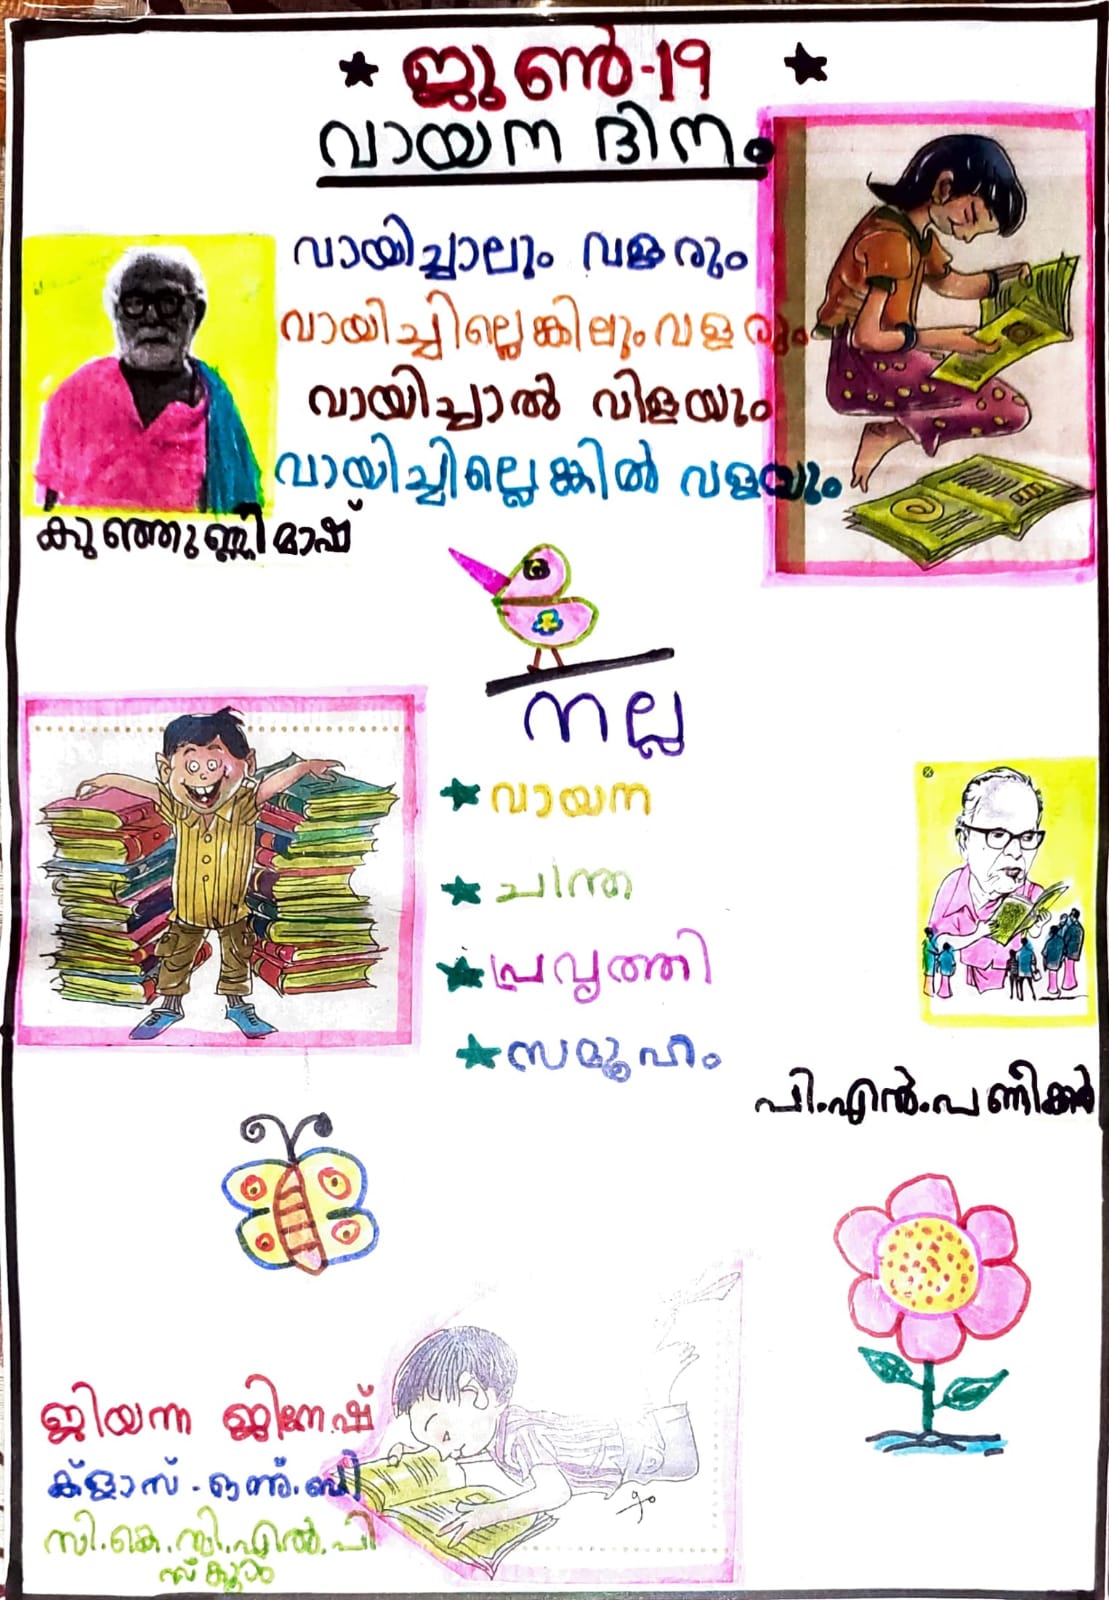 ജൂൺ-19
വായന ദിനം
വായിച്ചാലും വളരും
വായിച്ചില്ലെങ്കിലും വളരും
വായിച്ചാൽ വിളയും
വായിച്ചില്ലെങ്കിൽ വളയും
കുഞ്ഞുണ്ണിമാഷ്
നല്ല
വായന
ചിന്ത
പ്രവൃത്തി
സമൂഹം
പി.എൻ.പണിക്കർ
ജിയന്ന ജിനേഷ്
ക്ളാസ്.ഒന്ന്.ബി
സി.കെ.സി.എൽ.പി
സ്കൂൾ